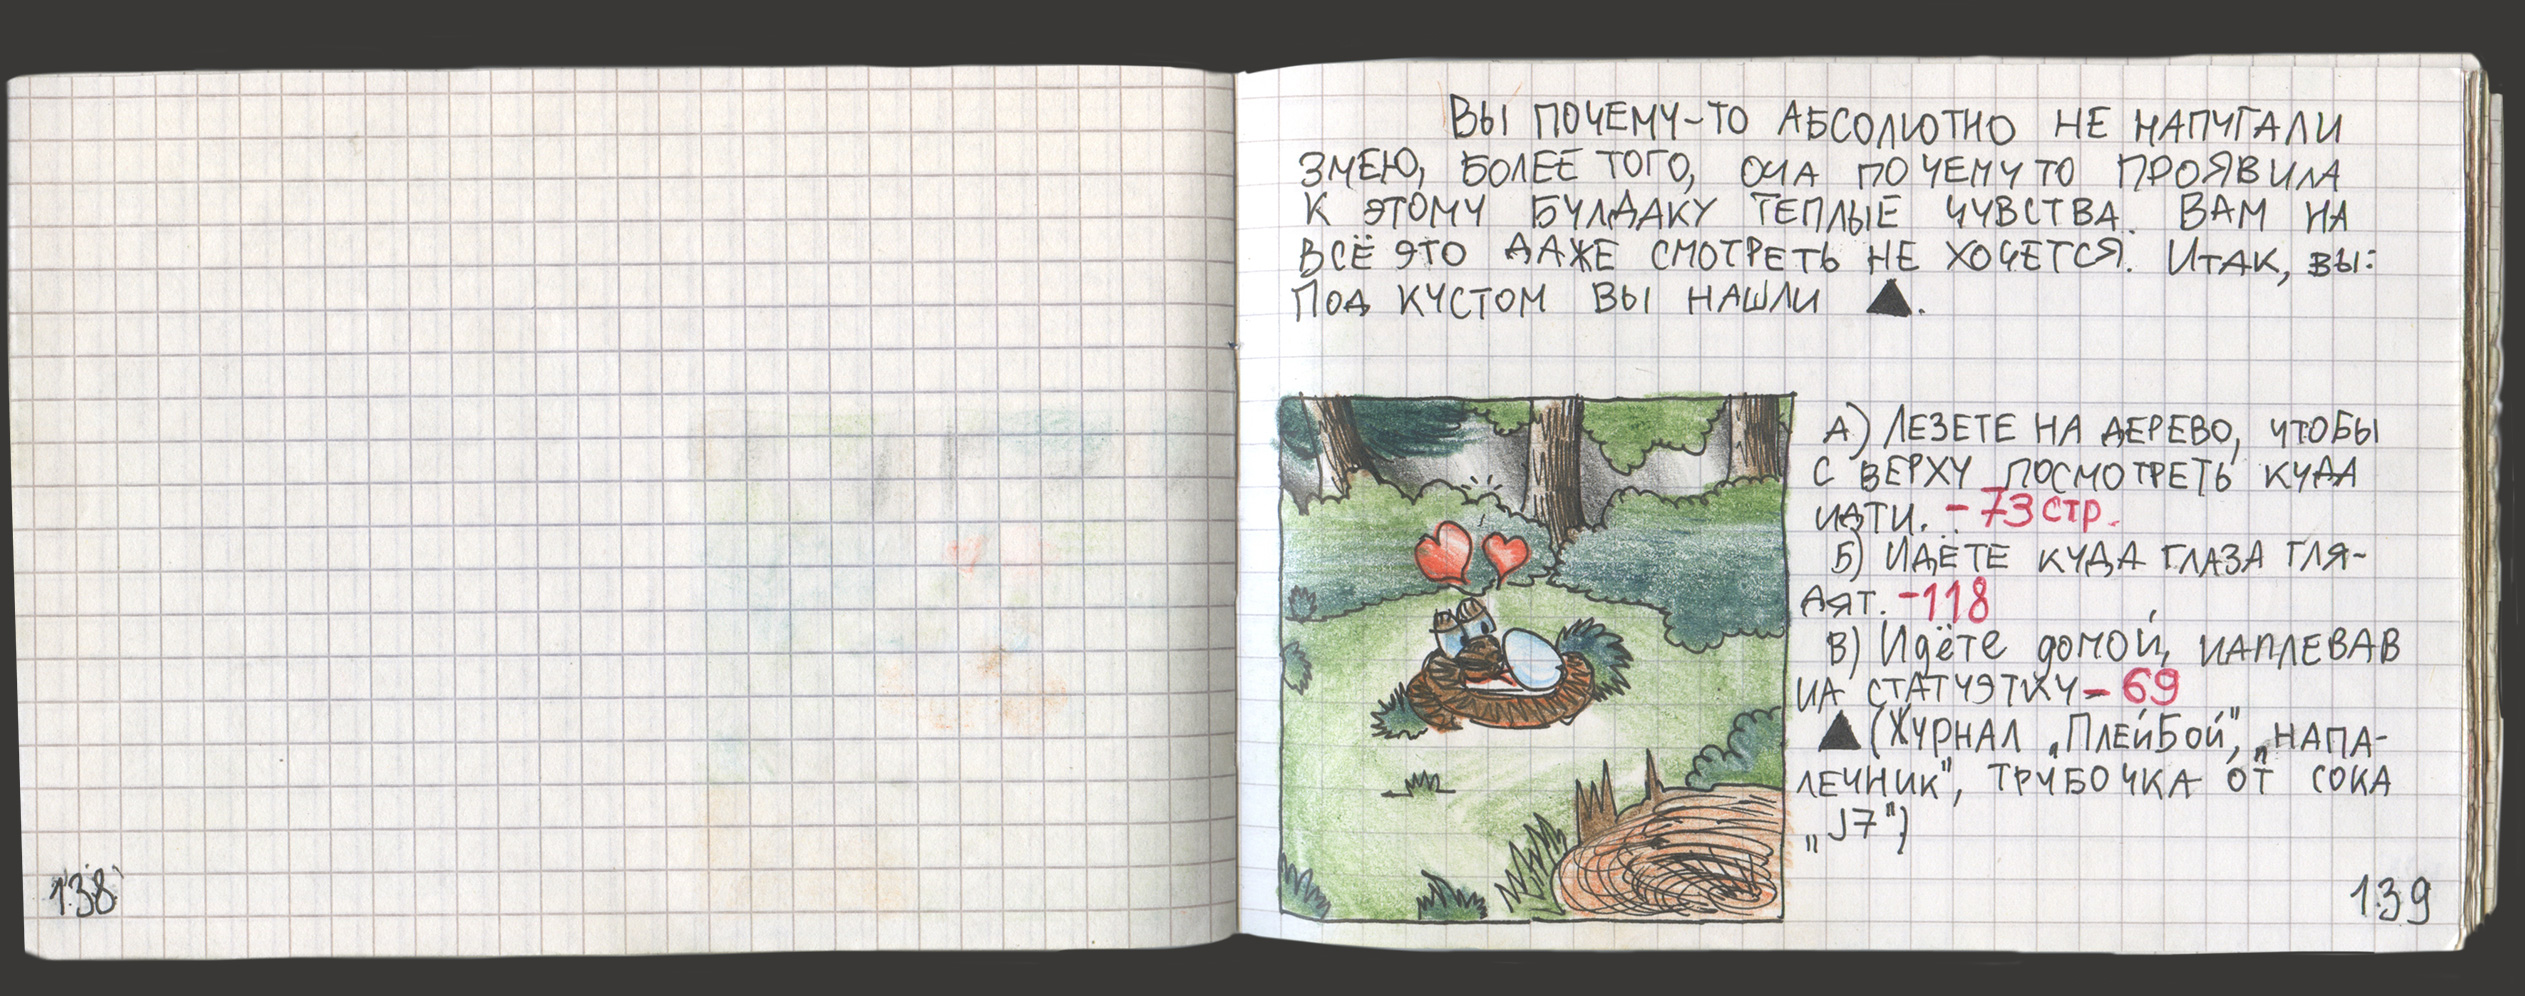 Вы почему-то абсолютно не напугали
змею, более того, она почемуто проявила
к этому булдаку теплые чувства. Вам на
всё это даже смотреть не хочется. Итак, вы:
Под кустом вы нашли ▲.
А) Лезете на дерево, чтобы
с верху посмотреть куда
идти. - 73 стр.
Б) Идёте куда глаза гля-
дят. - 118
В) Идёте домой, наплевав
на статуэтку - 69
▲ (Журнал „Плейбой", „напа-
лечник", трубочка от сока
„J7")
138
139